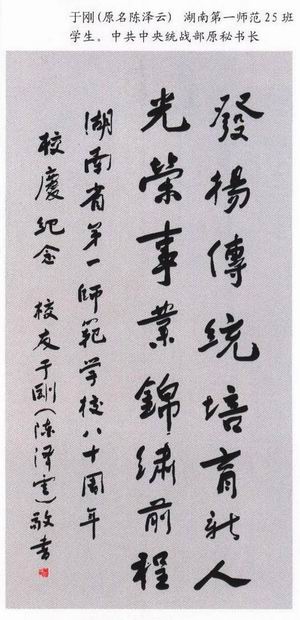 于刚(原名陈泽云) 湖南第一师范25班
学生。中共中央统战部原秘书长
發揚傳統培育新人
光榮事業錦绣前程
湖南省第一師範学校八十周年
校慶纪念 校友于剛(陈泽云)敬书